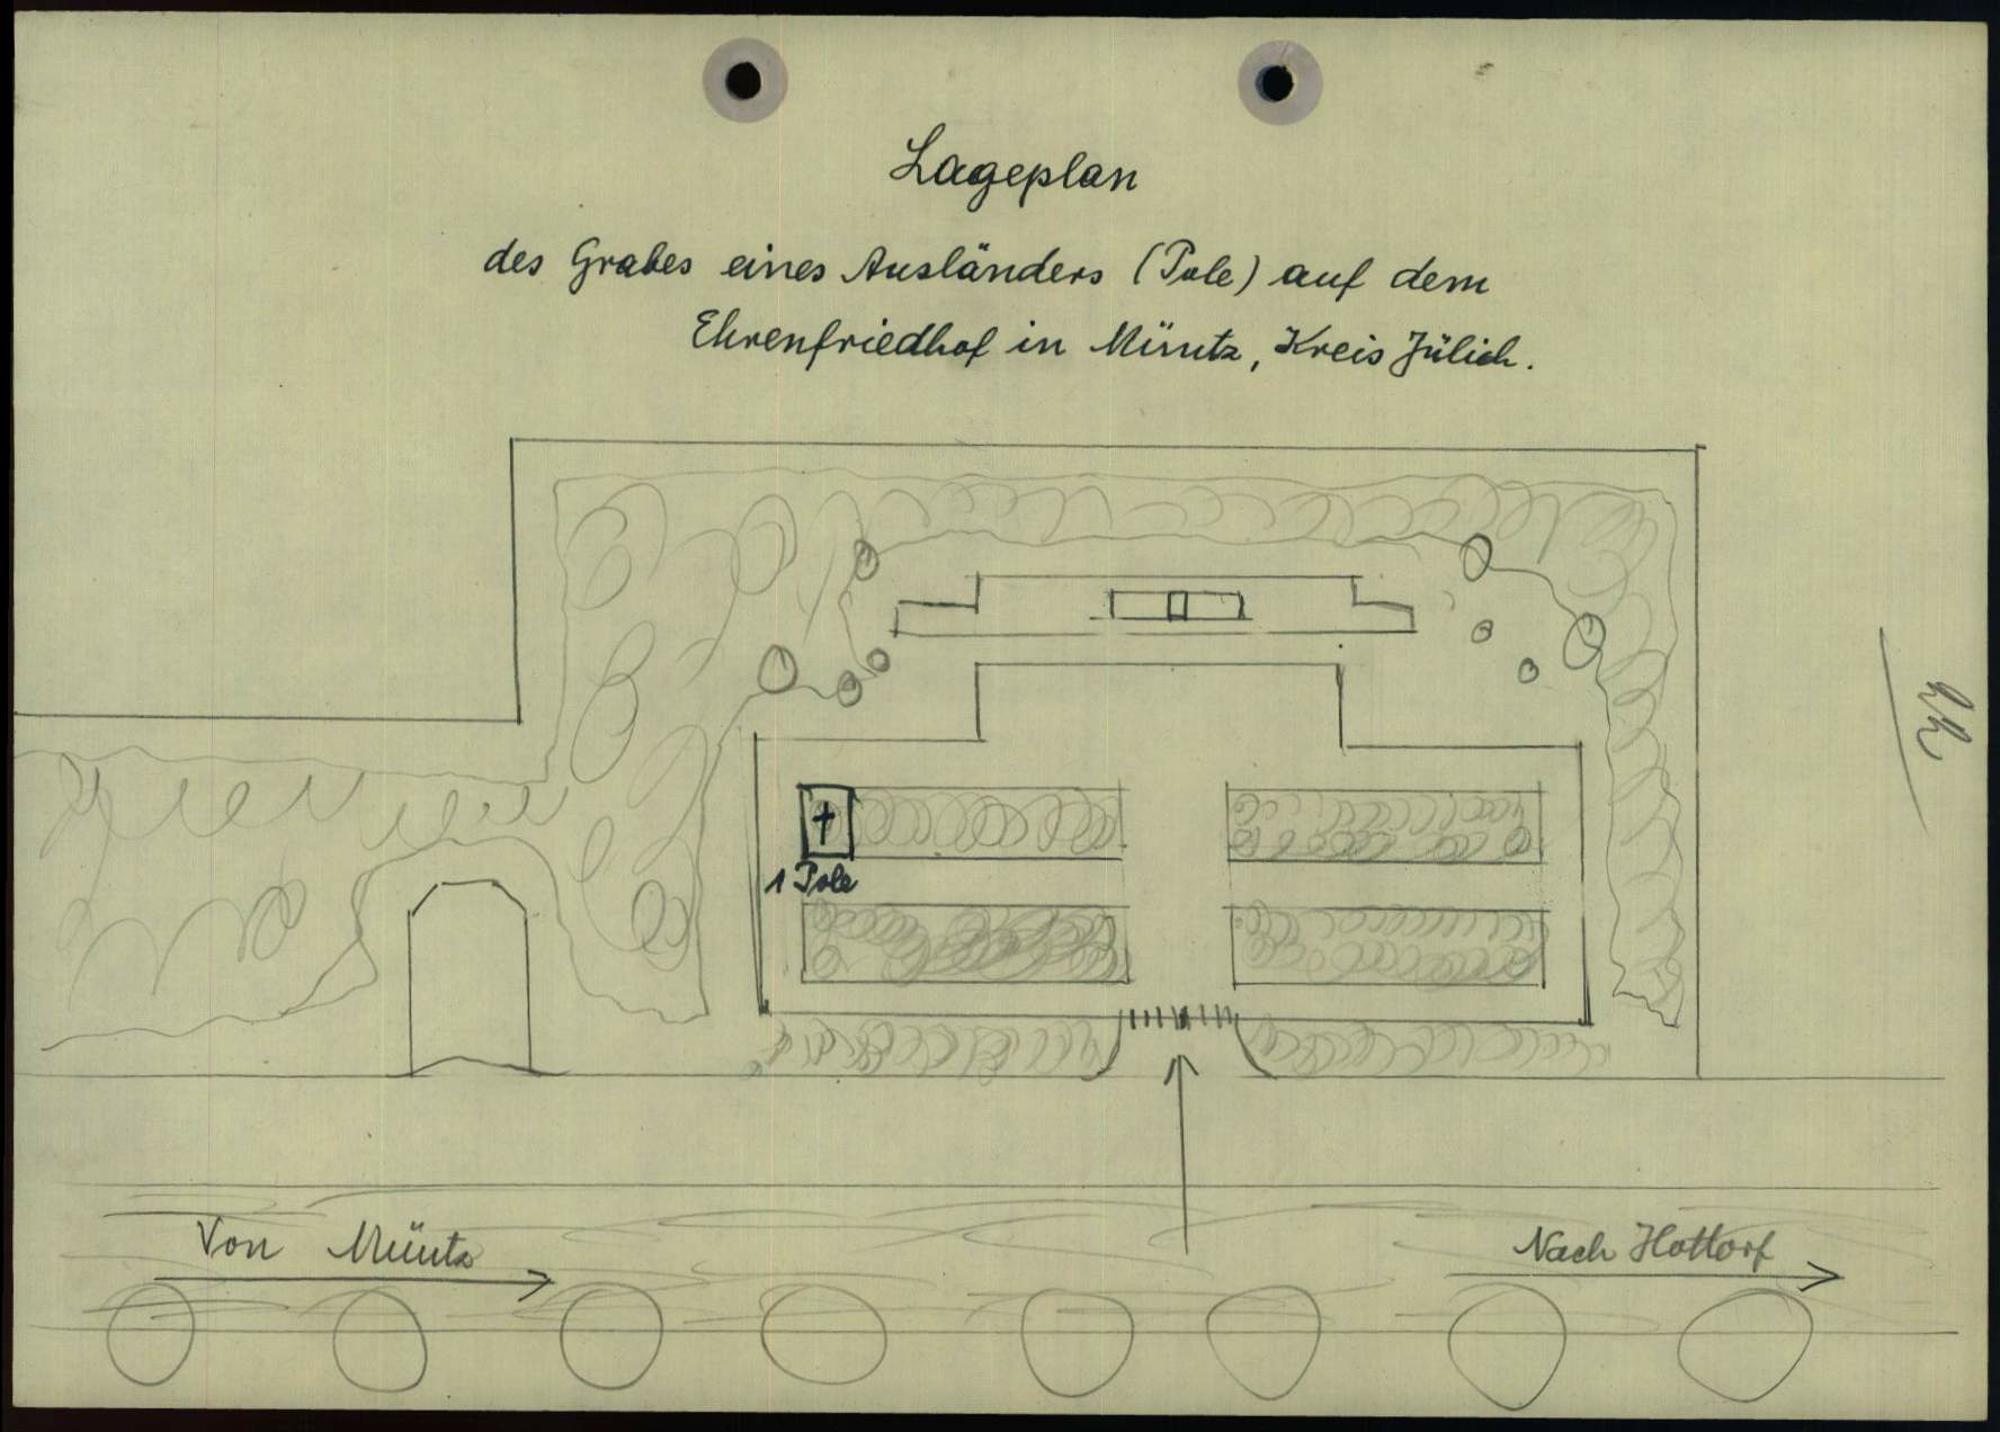 Lageplan
des Grabes eines Ausländers (Pole) auf dem
Ehrenfriedhof in Müntz, Kreis Jülich.
1 Pole
Von Müntz
Nach Hottorf